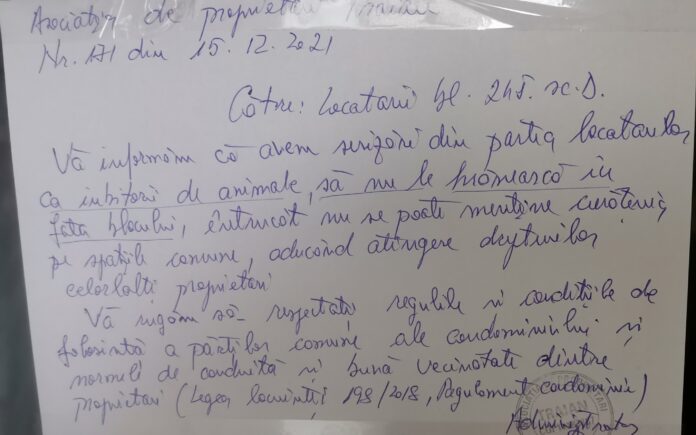 Asociația de proprietari Traian
Nr. 171 din 15.12.2021
Către: Locatarii bl. sc. D.
Vă informăm că avem sesizări din partea locatarilor
ca iubitorii de animale, să nu le hrănească în
fața blocului, întrucât nu se poate menține curățenia
pe spațiile comune, aducând atingere drepturilor
celorlalți proprietari
Vă rugăm să respectați regulile și condițiile de
folosință a părților comune ale condominiului și
normele de conduită și bună vecinătate dintre
proprietari (Legea locuinței 198/2018, Regulament condominiu)
Administrator
TRAIAN